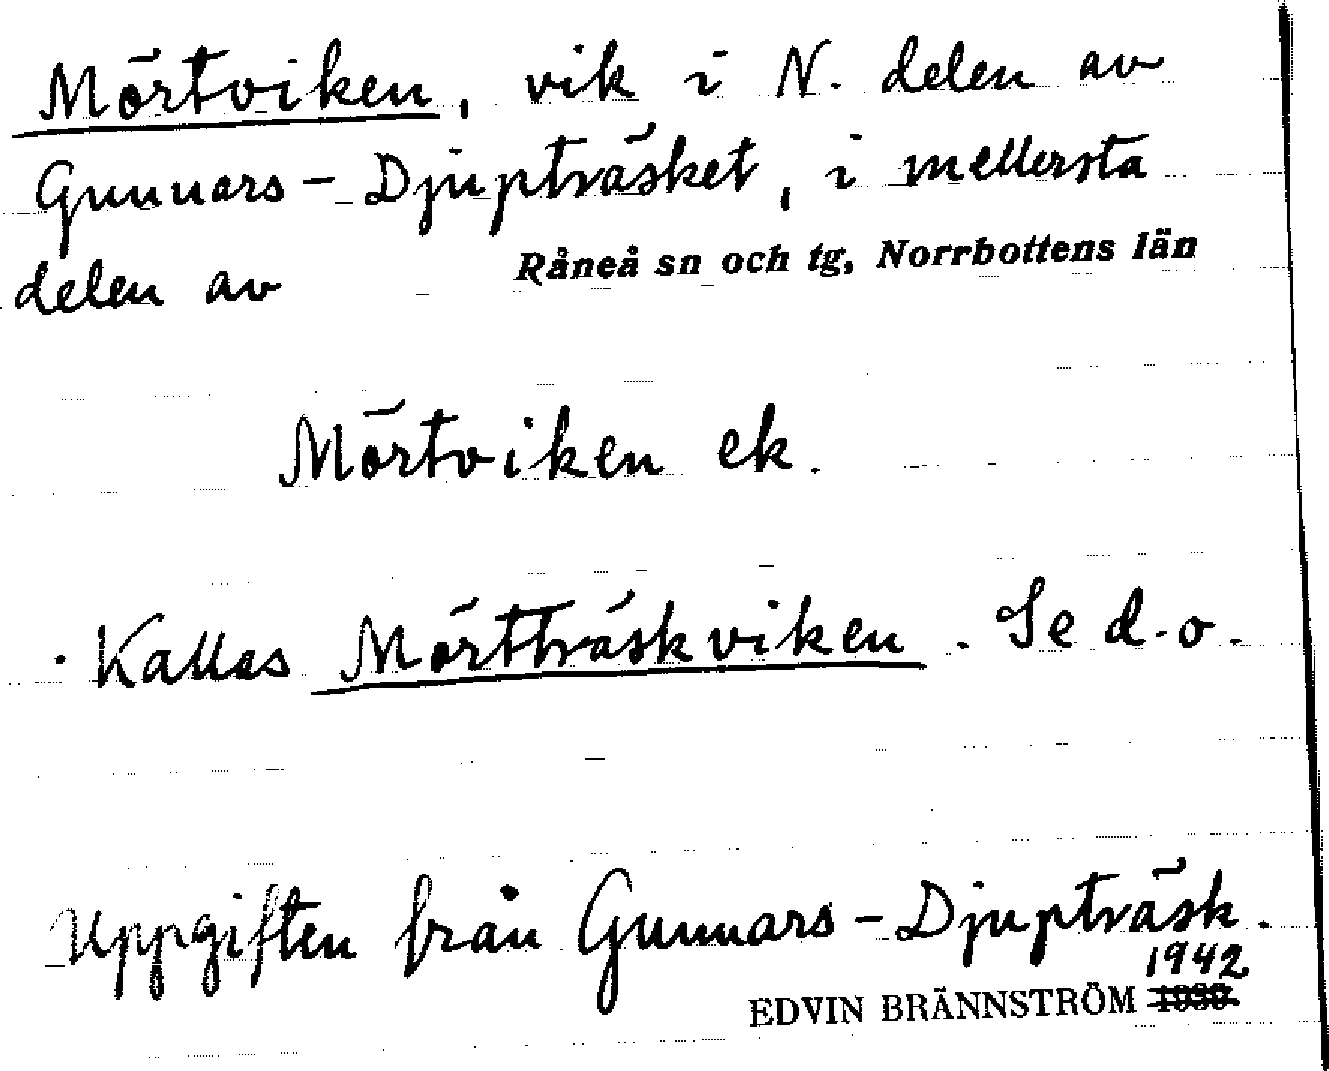 Mörtviken, vik i N. delen av
Gunnars-Djupträsket, i mellersta
delen av Råneå sn och tg, Norrbottens län
Mörtviken ek.
Kallas Mörtträskviken. Se d.o.
Uppgiften från Gunnars-Djupträsk.
1942
EDVIN BRÄNNSTRÖM